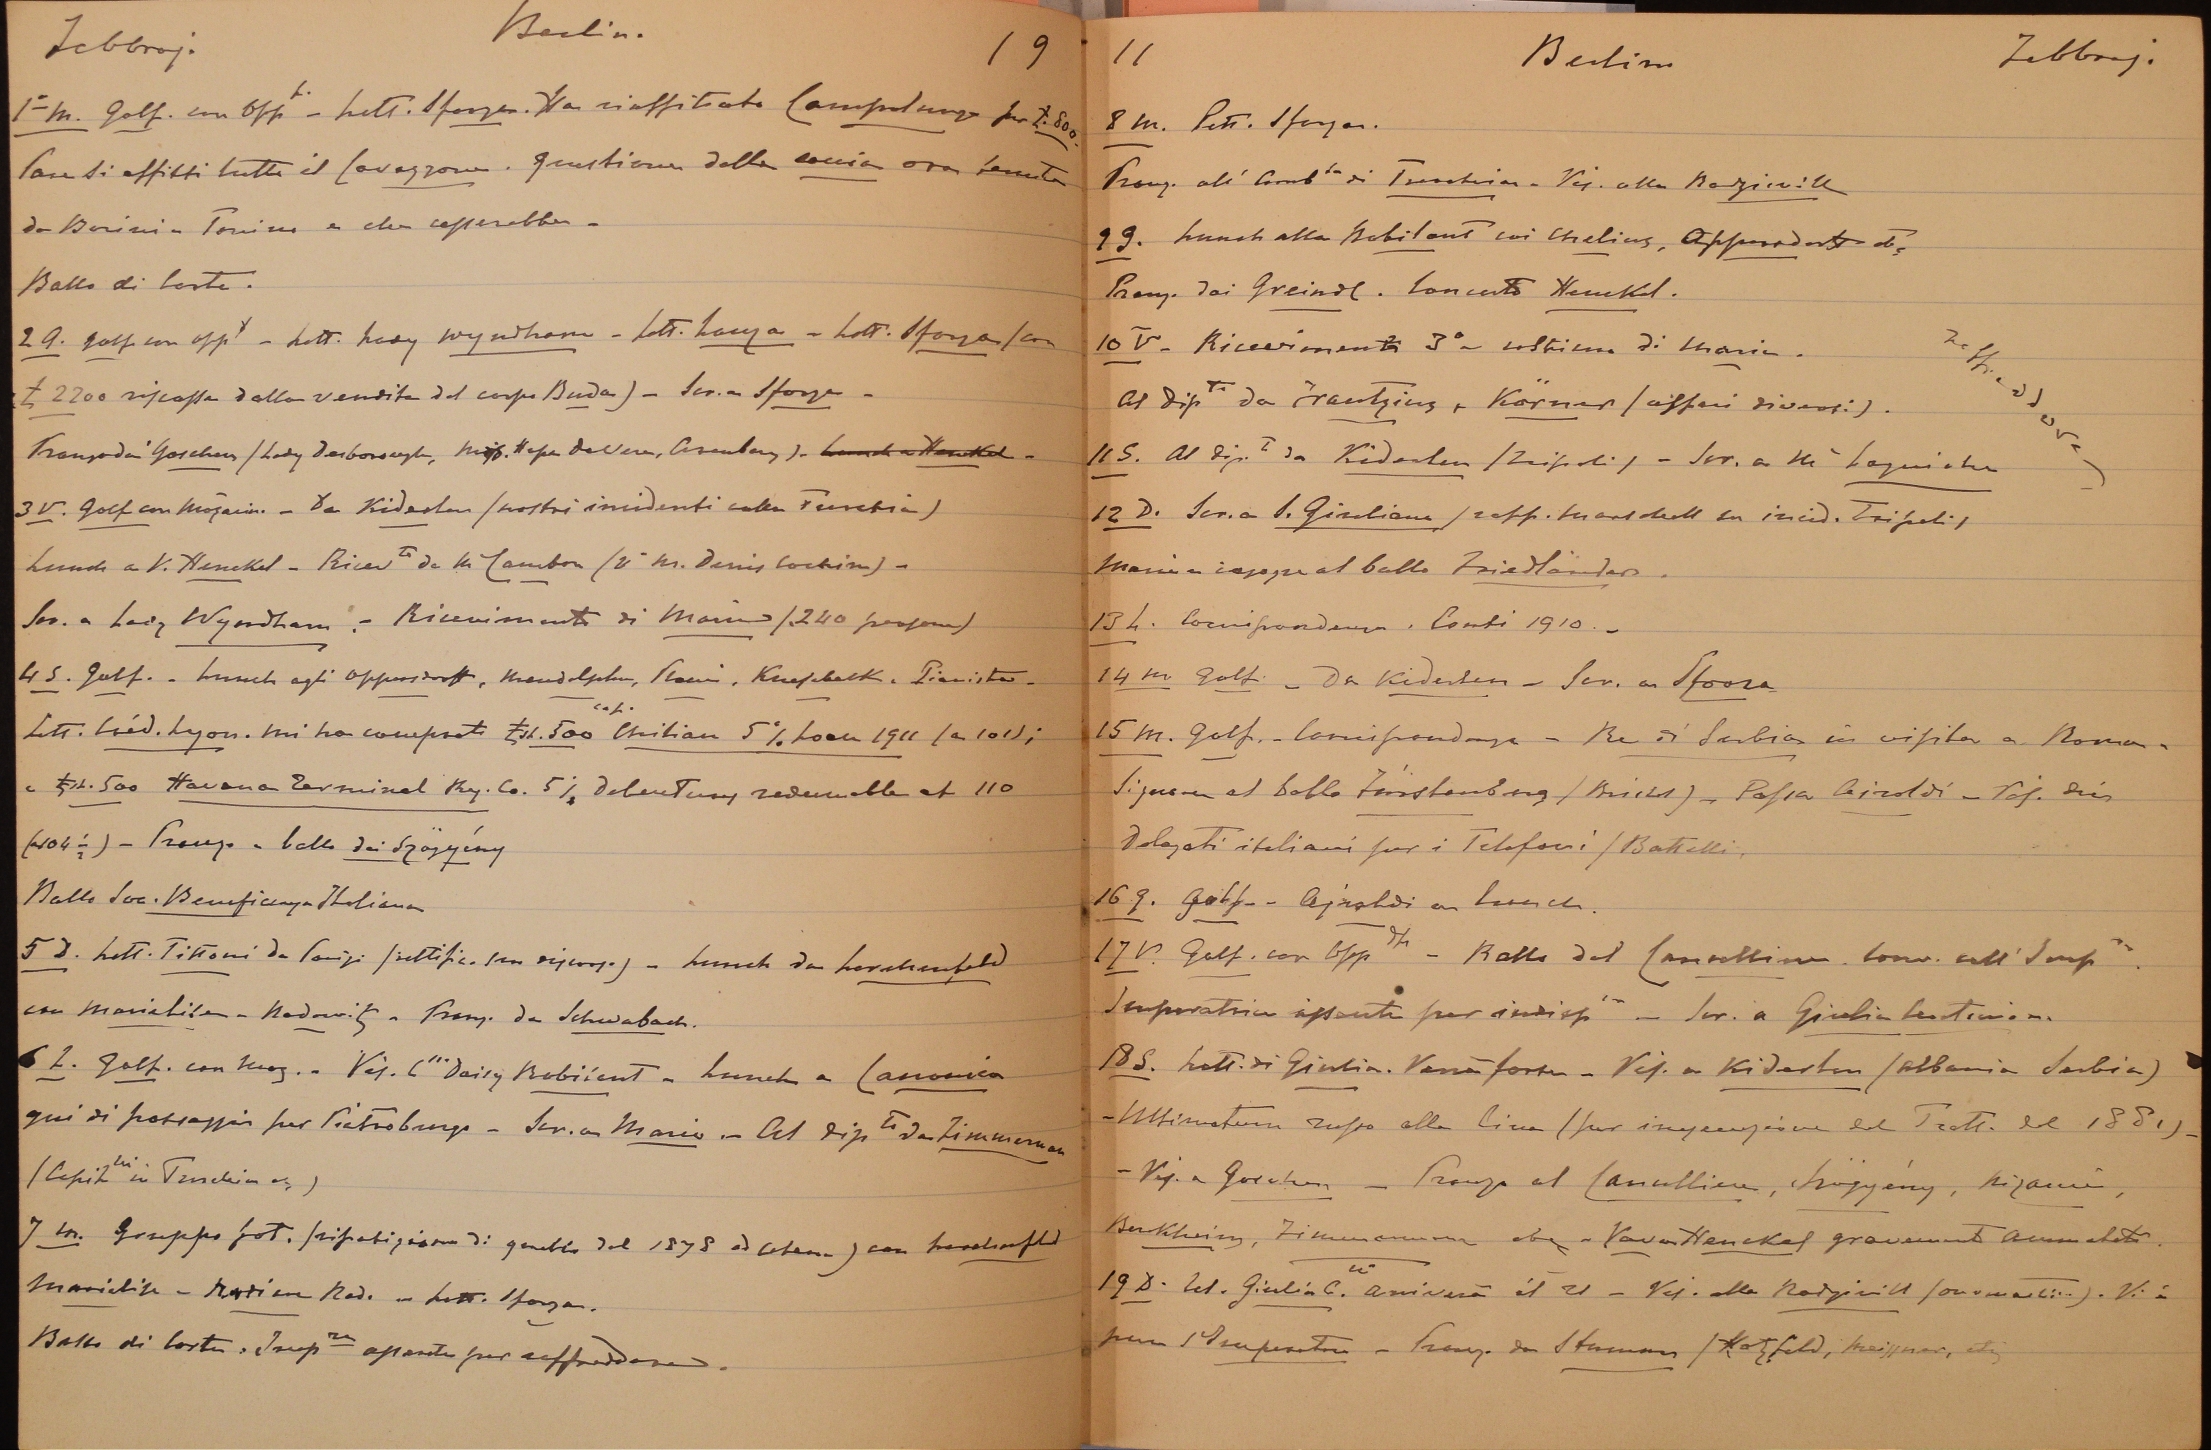 Febbraj. Berlin. 19
1° M. Golf. con Opp - Lett. Sforza. Ha riaffittato Campolungo per £. 800.
Pare si affitti tutto il Cavezzone. Questione della ora tenuta
da Torino e che cesserebbe -
Ballo di Corte.
2 G. Golf con Opp - Lett. Lady Wyndham - Lett. Lanza - Lett. Sforza (con
£ 2200 riscossa dalla vendita del corpo Buda) - Scr. a Sforza -
Pranzo dai Goschen (Lady Desborough, Arenberg) - Lunch a Henckel -
3 V. Golf con - Da Kiderlen (nostri incidenti colla Turchia)
Lunch a V. Henckel - Ricev.to da M. Cambon (v'è M. Denis Cochin) -
Scr. a Lady Wyndham - Ricevimento di Maria (240 persone)
4 S. Golf. - Lunch agli Oppersdorff, Knesebeck.
Lett. Créd. Lyon. mi ha comprato £st. 500 cap. Chilian 5% Loan 1911 (a 101);
e £st. 500 Havana Terminal Ry. Co. 5% Debentures redeemable at 110
(a 104 ½) - Pranzo e ballo dai Szögyény
Ballo Soc. Beneficenza Italiana
5 D. Lett. Tittoni da Parigi (rettifica suo discorso) - Lunch da Lerchenfeld
con Marielise - Radowitz - Pranz. da Schwabach.
6 L. Golf. con - Vis. C.ssa Daisy Robilant - Lunch a Canonica
qui di passaggio per Pietroburgo - Scr. a Mario - Al dip.to da Zimmerman
(Capit.ni in Turchia ec)
7 M. Gruppo fot. (ripetizione di quello del 1878 ad ) con Lerchenfeld
Marielise - Rad. - Lett. Sforza.
Ballo di Corte. Imp.ce assente per raffreddore.
11 Berlino Febbraj.
8 M. Lett. Sforza.
Pranz. all'Amb.ta di Turchia - Vis. alla Radziwill
9 G. Lunch alla Robilant coi Chelius, Oppersdorff ec
Pranz. dai Greindl. Concerto Henckel.
10 V - Ricevimento 3° e ultimo di Maria.
raffreddore
Al dip.to da Trautzius, Körner (affari diversi).
11 S. Al dip.to da Kiderlen (Tripoli) - Scr. a M
12 D. Scr. a S. Giuliano (rapp. Marschall su incid. Tripoli)
Maria al ballo Friedländer.
13 L. Corrispondenza. Conti 1910. -
14 M Golf - Da Kiderlen - Scr. a Sforza
15 M. Golf. - Corrispondenza - Re di Serbia in visita a Roma -
Signore al ballo Fürstenberg - Passa Airoldi - Vis. dei
Delegati italiani per i Telefoni (Battelli
16 G. Golf - Airoldi a lunch.
17 V. Golf. con Opp.dff - Ballo del Cancelliere. Conv. coll'Imp.re.
Imperatrice assente per indisp.ne - Scr. a Giulia
18 S. Lett. di Giulia. Verrà forse - Vis. a Kiderlen (Albania Serbia)
- Ultimatum russo alla Cina (per inesecuzione del Tratt. del 1881) -
- Vis. a Goschen - Pranzo al Cancelliere, Szögyény, Nizami,
Berckheim, Zimmermann ec - Henckel gravemente ammalato.
19 D. Tel. Giulia C. arriverà il 21 - Vis. alla Radziwill (onomastico). Vi è
pure l'Imperatore - Pranz. da Stumm (Hatzfeld, Meissner, etc